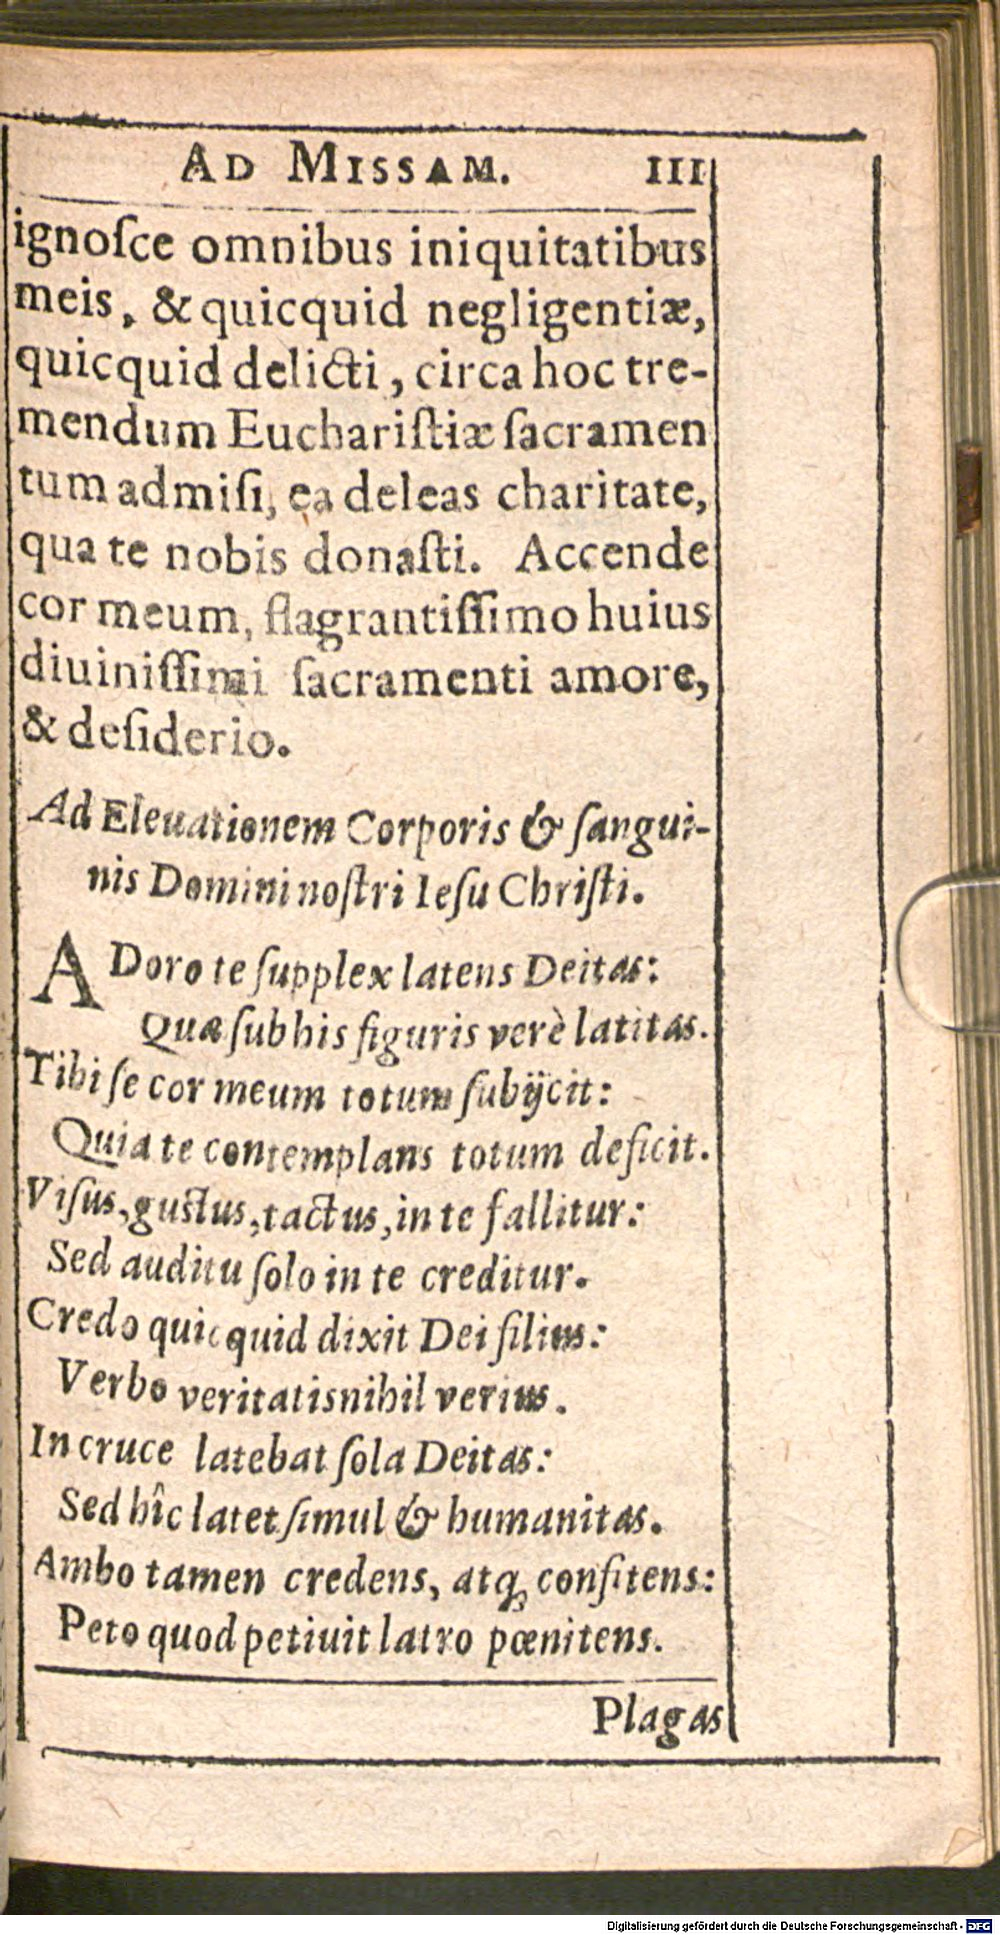 AD MISSAM. III
ignoſce omnibus iniquitatibus
meis, & quicquid negligentiæ,
quicquid delicti, circa hoc tre-
mendum Euchariſtiæ ſacramen
tum admiſi, ea deleas charitate,
qua te nobis donaſti. Accende
cor meum, flagrantiſſimo huius
diuiniſſimi ſacramenti amore,
& deſiderio.
Ad Eleuationem Corporis & ſangui-
nis Domini noſtri Ieſu Chriſti.
ADoro te ſupplex latens Deitas:
Quæ ſub his figuris verè latitas.
Tibi ſe cor meum totum ſubijcit:
Quia te contemplans totum deficit.
Viſus, guſtus, tactus, in te fallitur:
Sed auditu ſolo in te creditur.
Credo quicquid dixit Dei filius:
Verbo veritatis nihil verius.
In cruce latebat ſola Deitas:
Sed hîc latet ſimul & humanitas.
Ambo tamen credens, atq; confitens:
Peto quod petiuit latro pœnitens.
Plagas
Digitalisierung gefördert durch die Deutsche Forschungsgemeinschaft - DFG